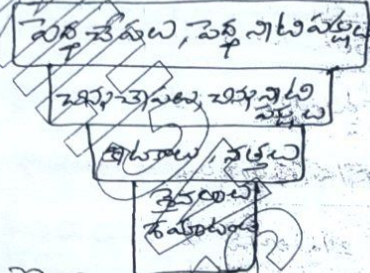 పెద్ద చేపలు, పెద్ద నీటి పక్షులు
చిన్న చేపలు, చిన్న నీటి
పక్షులు
కీటకాలు, నత్తలు
శైవలాలు